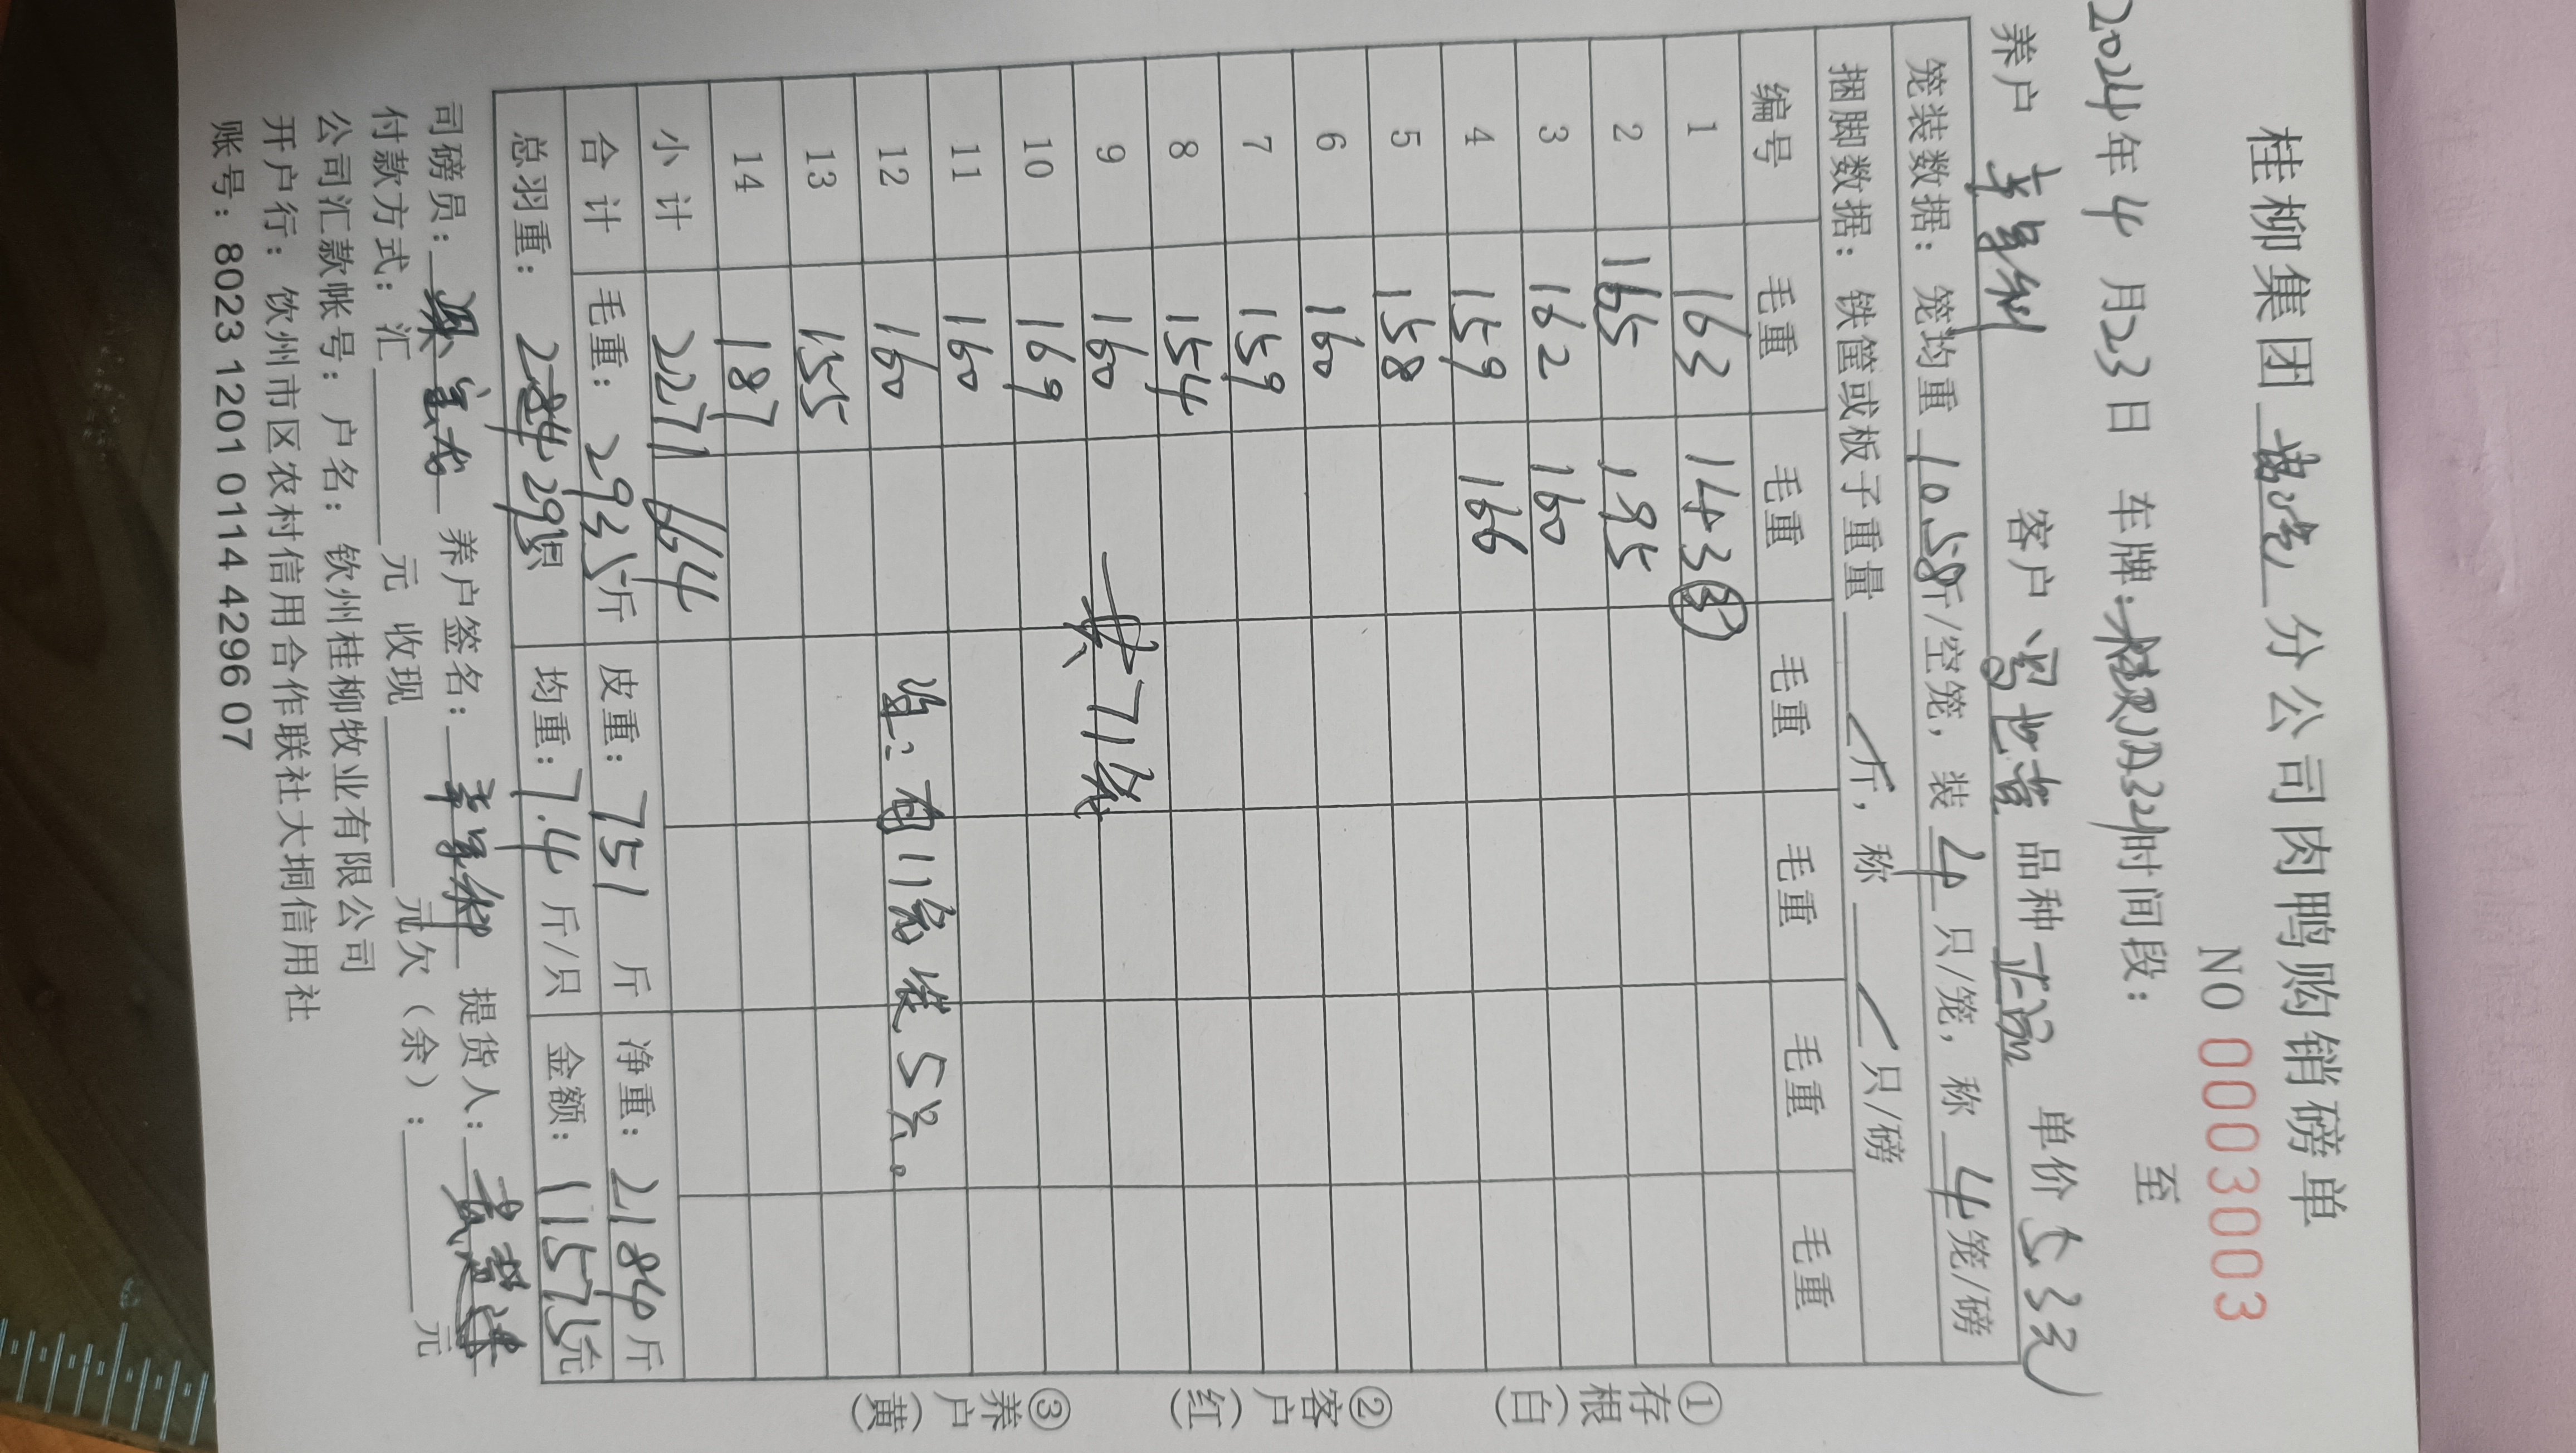 桂柳集团 分公司肉鸭购销磅单
NO 0003003
2024年4月23日 车牌: 时间段: 至
养户 客户 品种 单价 5.3元
笼装数据: 笼均重 10.58斤/空笼, 装 4 只/笼, 称 4 笼/磅
捆脚数据: 铁筐或板子重量 / 斤, 称 / 只/磅
编号 毛重 毛重 毛重 毛重 毛重 毛重
1 163 143 ③
2 165 195
3 162 160
4 159 166
5 158
6 160
7 159
8 154
9 160 共71笼
10 169
11 160
12 160 注:有11笼装5只。
13 155
14 187
小计 2271 664
合计 毛重: 2935斤 皮重: 751 斤 净重: 2184斤
总羽重: 295只 均重: 7.4 斤/只 金额: 11575元
司磅员: 养户签名: 提货人:
付款方式: 汇 元 收现 元 元欠(余): 元
公司汇款帐号: 户名: 钦州桂柳牧业有限公司
开户行: 钦州市区农村信用合作联社大垌信用社
账号: 8023 1201 0114 4296 07
①存根(白) ②客户(红) ③养户(黄)